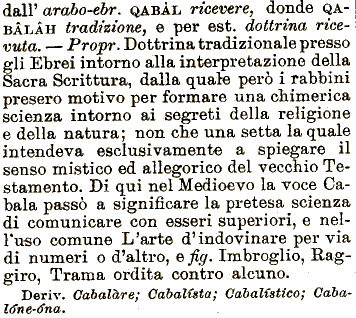 dall' arabo-ebr. QABÀL ricevere, donde QA-
BÂLÂH tradizione, e per est. dottrina rice-
vuta. — Propr. Dottrina tradizionale presso
gli Ebrei intorno alla interpretazione della
Sacra Scrittura, dalla quale però i rabbini
presero motivo per formare una chimerica
scienza intorno ai segreti della religione
e della natura; non che una setta la quale
intendeva esclusivamente a spiegare il
senso mistico ed allegorico del vecchio Te-
stamento. Di qui nel Medioevo la voce Ca-
bala passò a significare la pretesa scienza
di comunicare con esseri superiori, e nel-
l'uso comune L'arte d'indovinare per via
di numeri o d'altro, e fig. Imbroglio, Rag-
giro, Trama ordita contro alcuno.
Deriv. Cabalàre; Cabalísta; Cabalístico; Caba-
lóne-óna.